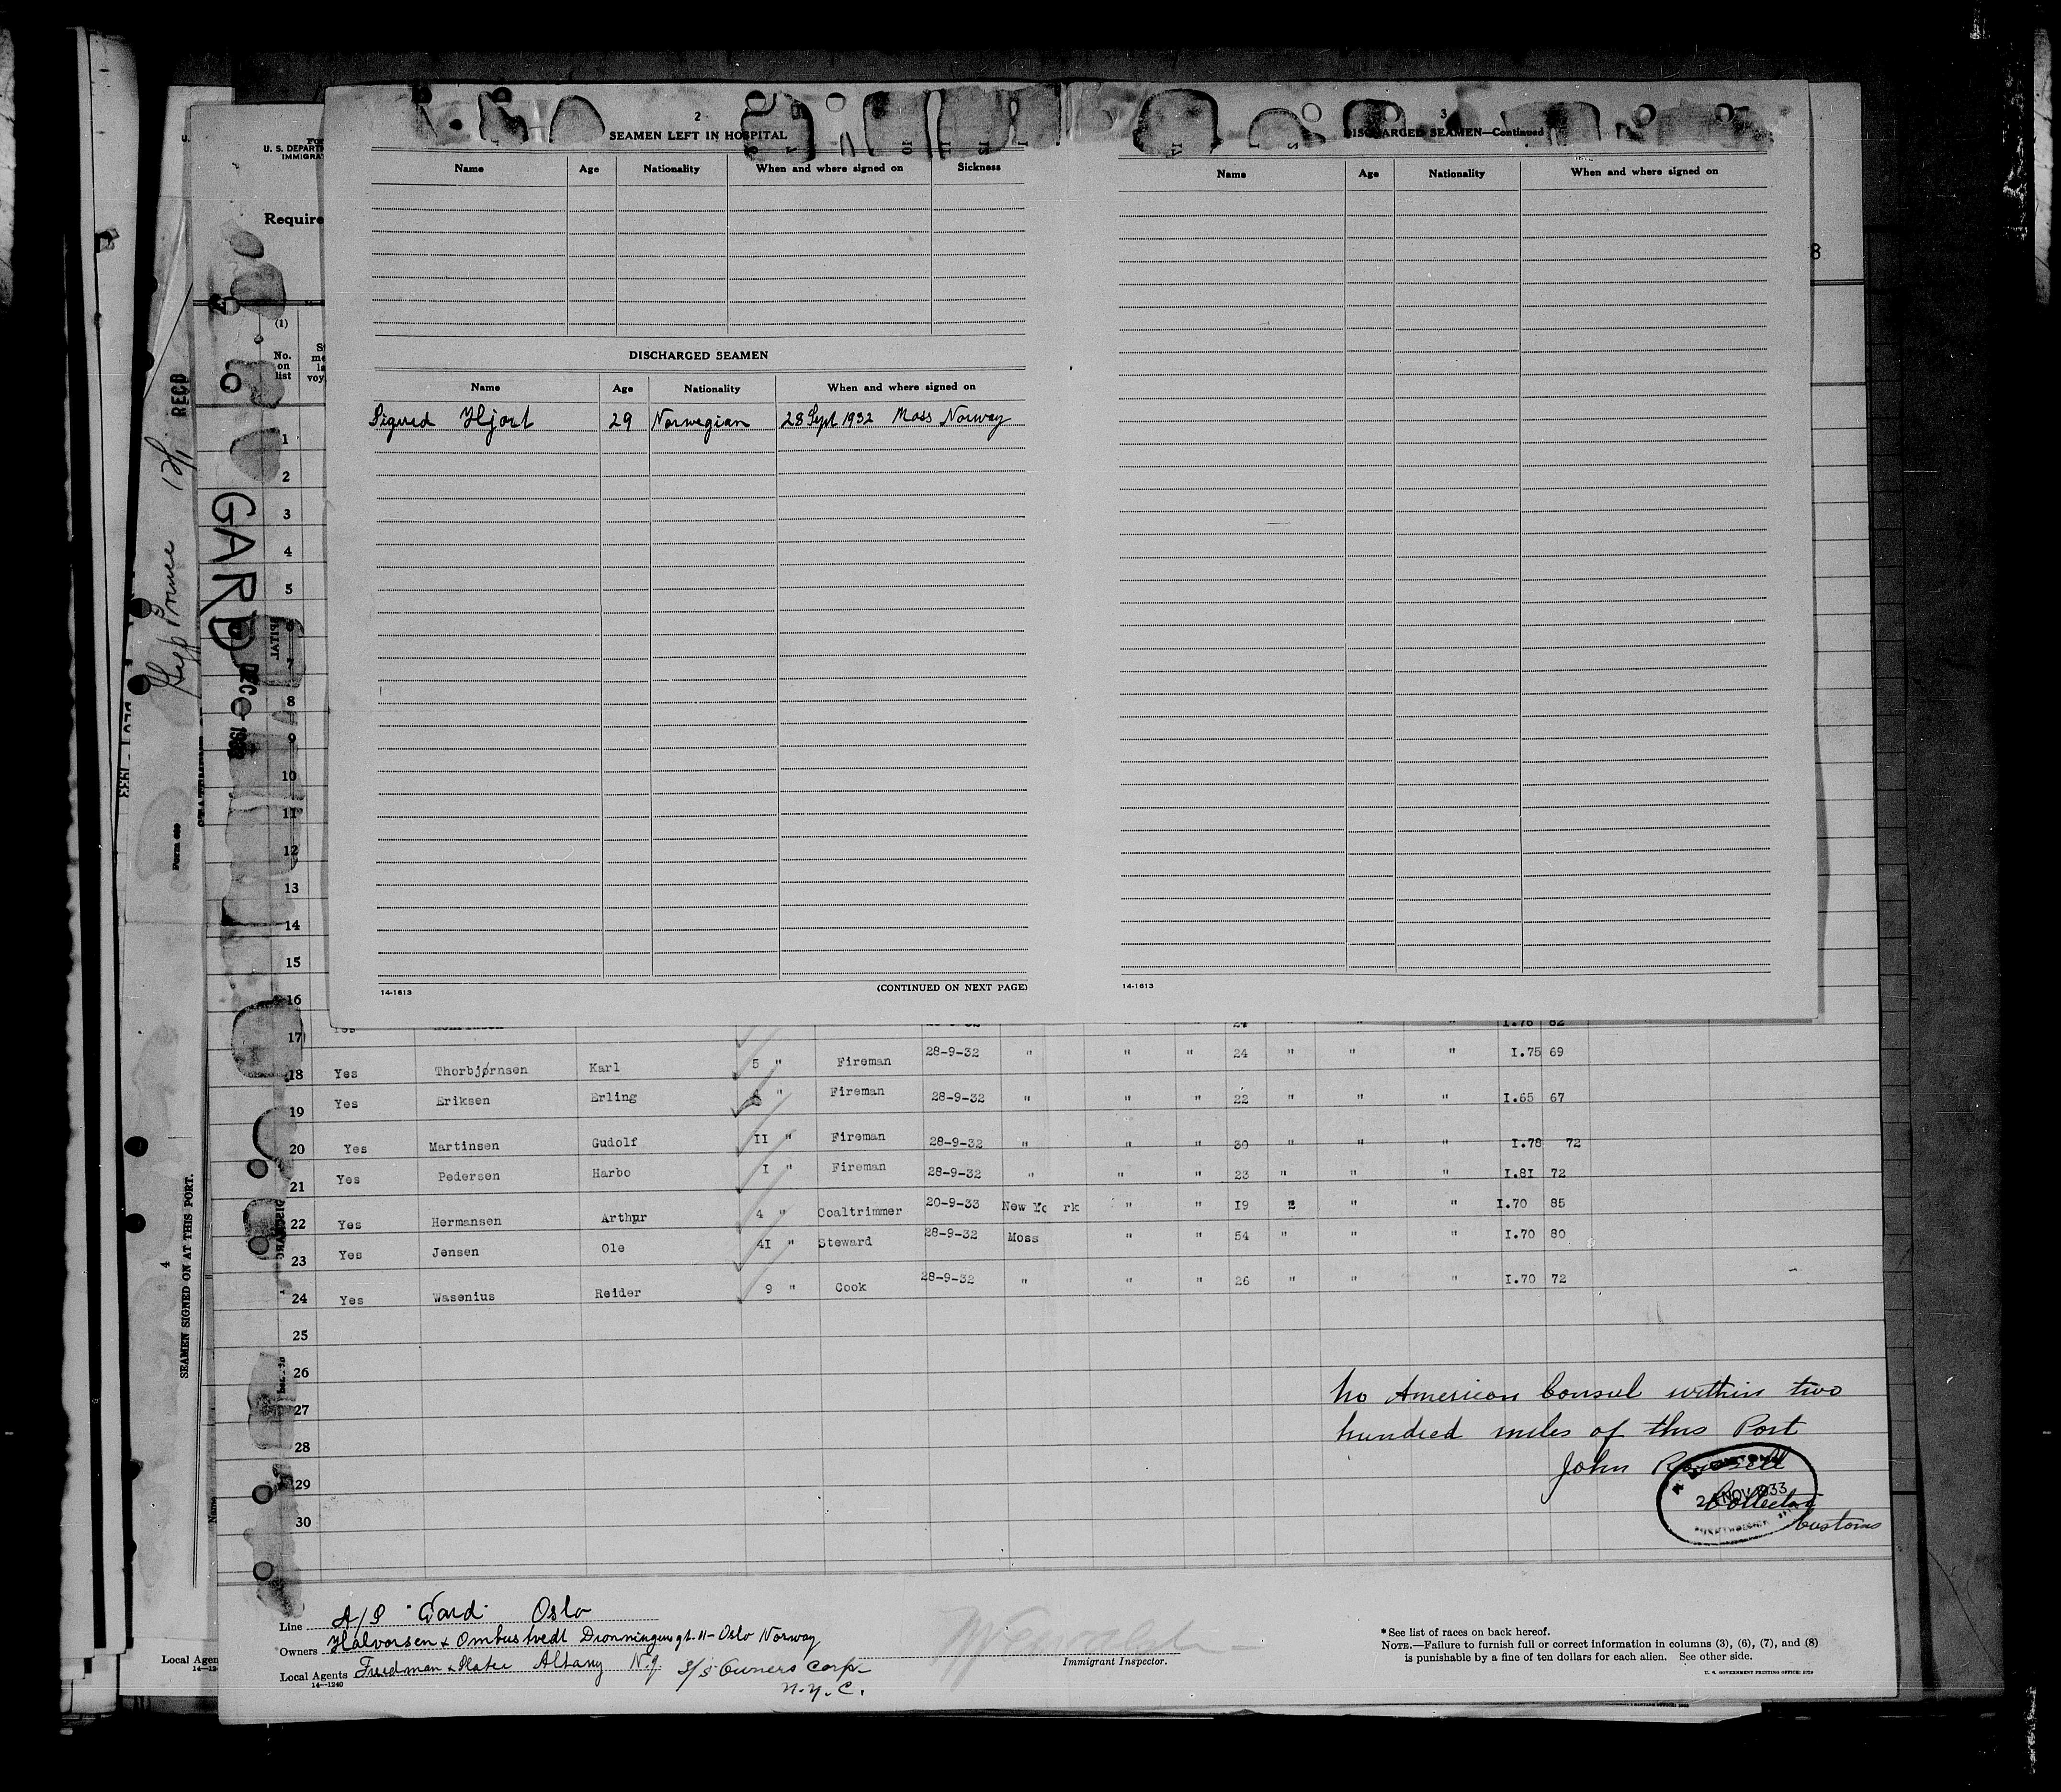 2
SEAMEN LEFT IN HOSPITAL
Name Age Nationality When and where signed on Sickness
DISCHARGED SEAMEN
Name Age Nationality When and where signed on
Sigurd Hjort 29 Norwegian 28 Sept 1932 Moss Norway
14-1613 (CONTINUED ON NEXT PAGE)
3
DISCHARGED SEAMEN—Continued
Name Age Nationality When and where signed on
14-1613
U. S. DEPART
IMMIGRA
Require
8
(1)
No.
on
list
RECD
GARD
DEC
Form 689
SEAMEN SIGNED ON AT THIS PORT.
4
Name
1
2
3
4
5
6
7
8
9
10
11
12
13
14
15
16
17 Yes 24 " " " 1.76 82
18 Yes Thorbjørnsen Karl 5 " Fireman 28-9-32 " " " 24 " " " I.75 69
19 Yes Eriksen Erling " Fireman 28-9-32 " " " 22 " " " I.65 67
20 Yes Martinsen Gudolf II " Fireman 28-9-32 " " " 30 " " " I.78 72
21 Yes Pedersen Harbo I " Fireman 28-9-32 " " " 23 " " " I.8I 72
22 Yes Hermansen Arthur 4 " Coaltrimmer 20-9-33 New York " " I9 " " " I.70 85
23 Yes Jensen Ole 4I " Steward 28-9-32 Moss " " 54 " " " I.70 80
24 Yes Wasenius Reider 9 " Cook 28-9-32 " " " 26 " " " I.70 72
25
26
27
28
29
30
No American Consul within two
hundred miles of this Port
John
Collector
Customs
NOV 1933
Line A/S "Gard" Oslo
Owners Halvorsen & Ombustvedt Dronningensgt. 11 - Oslo Norway
Local Agents Friedman & Slater Albany N.Y. S/S Owners Corp.
N.Y.C.
14—1240
Immigrant Inspector.
* See list of races on back hereof.
NOTE.—Failure to furnish full or correct information in columns (3), (6), (7), and (8)
is punishable by a fine of ten dollars for each alien. See other side.
U. S. GOVERNMENT PRINTING OFFICE: 1929
Local Agen